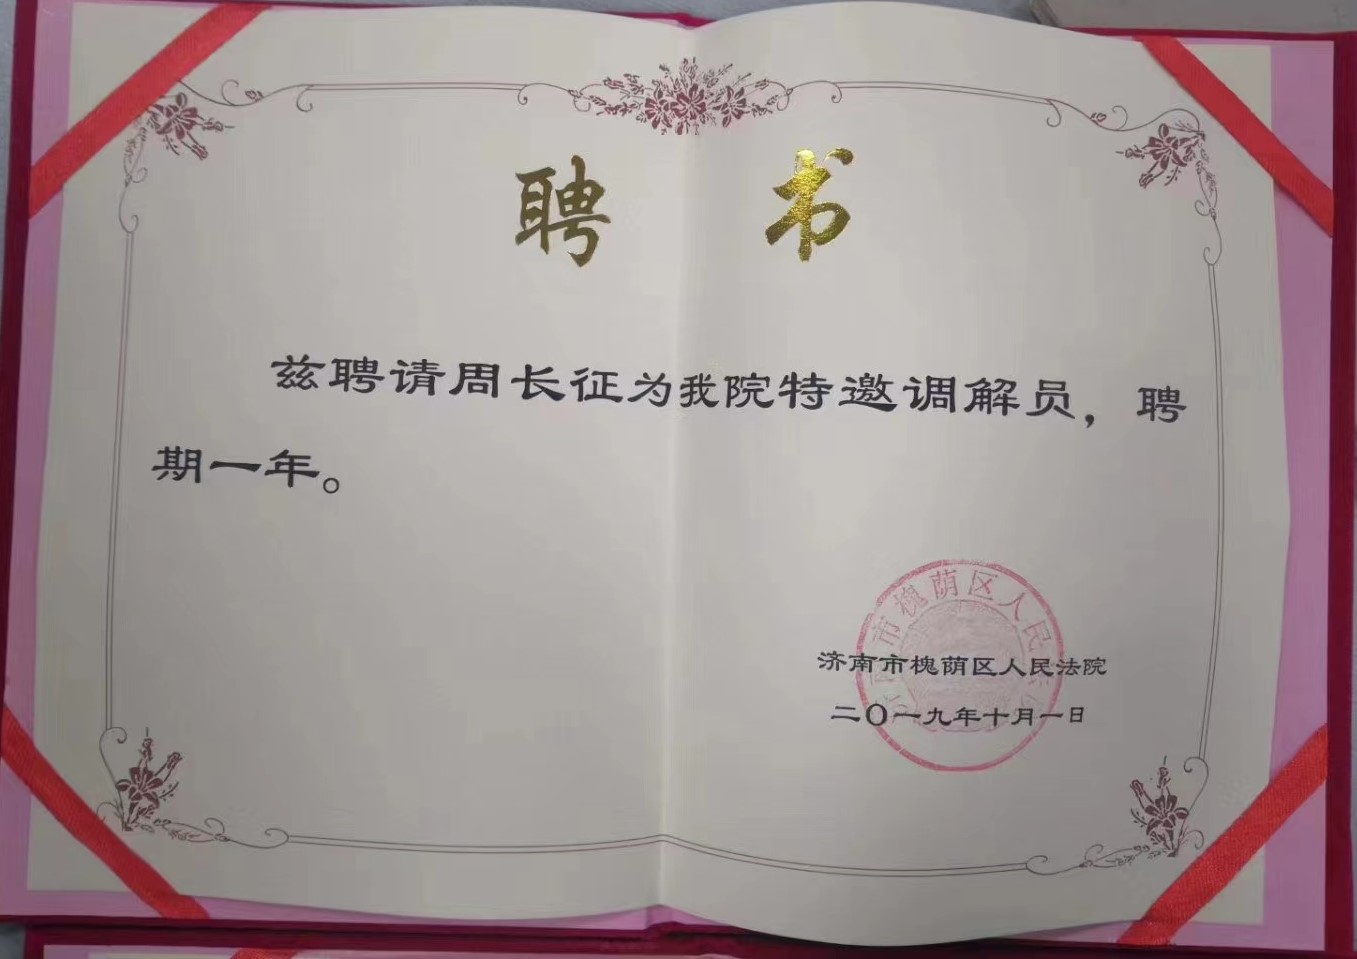 聘书
兹聘请周长征为我院特邀调解员，聘
期一年。
市槐荫区人民
济南市槐荫区人民法院
二〇一九年十月一日